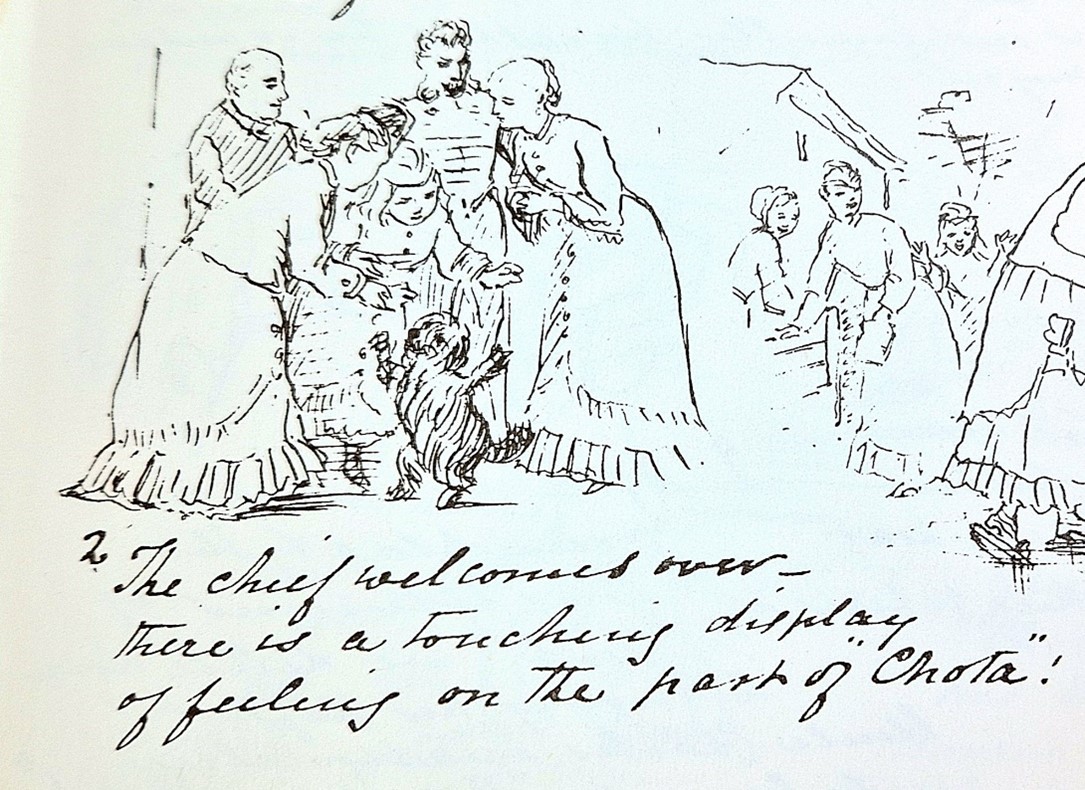 2 The chief welcomes over –
there is a touching display
of feeling on the part of "Chota"!